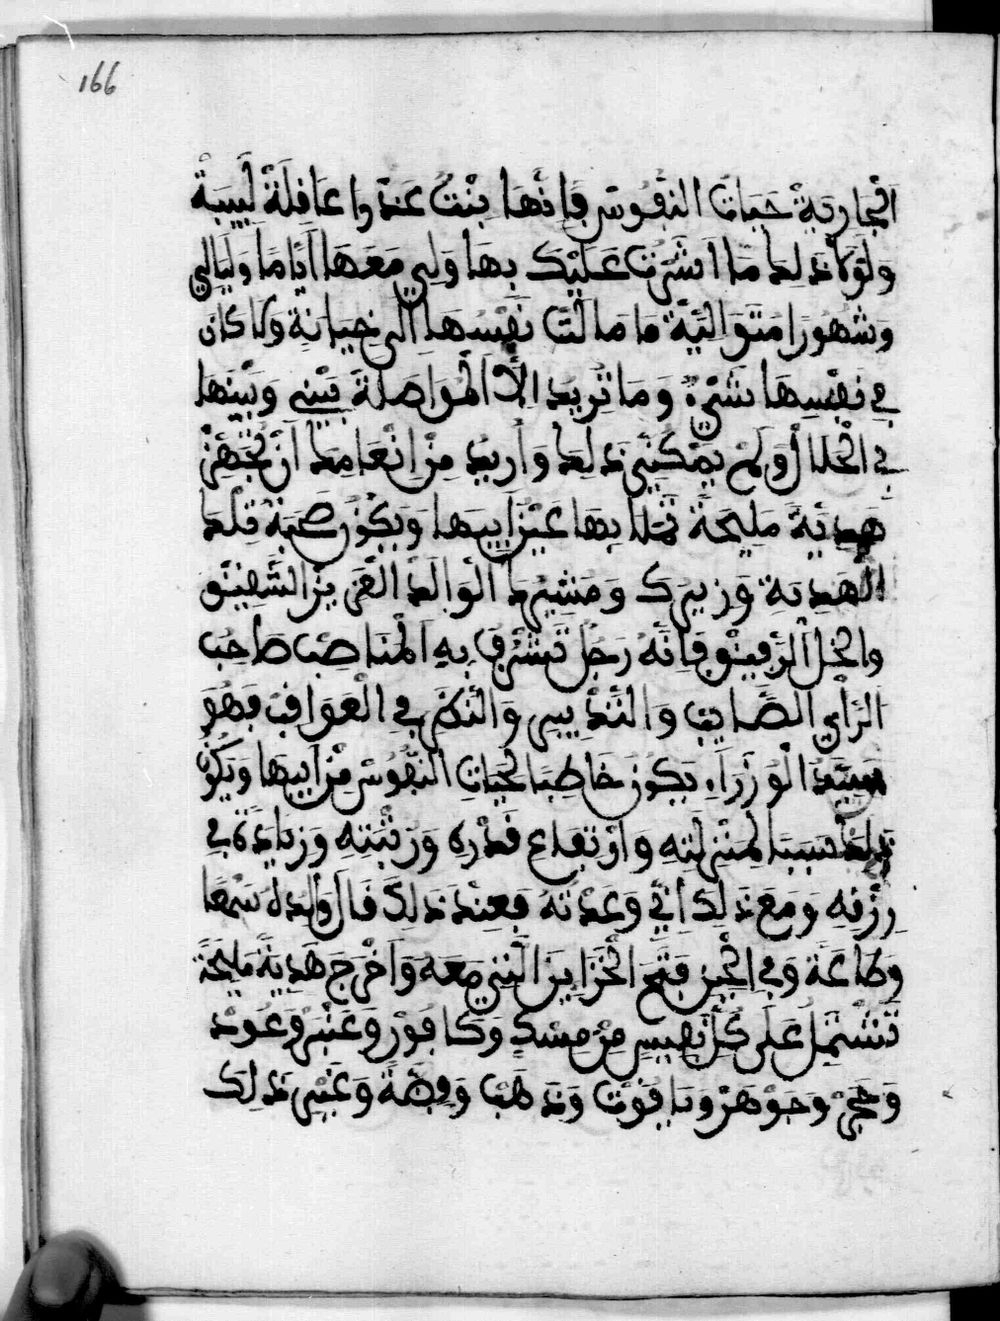 166
الجارية حيات النفوس فإنها بنت عذرا عاقلة لبيبة
ولولا ذلك ما اشرت عليك بها ولي معها أياما وليالي
وشهورا متوالية ما مالت نفسها الى خيانة ولا كان
في نفسها شيء وما تريد الا المواصلة بيني وبينها
في الحلال ولم يمكنني ذلك واريد من انعامك أن تجهز
هدية مليحة تملا بها عين ابيها ويكون صحبة تلك
الهدية وزيرك ومشيرك الوالد القرين الشفيق
والخل الرفيق فإنه رجل تتشرف به المناصب صاحب
الرأي الصايب والتدبير والنظر في العواقب فهو
سيد الوزراء يكون خاطبا لحيات النفوس من ابيها ويكون
ذلك سببا لمنزلته وارتفاع قدره ورتبته وزيادة في
رزقه ومع ذلك أني وعدته فعند ذلك قال والدك سمعا
وطاعة وفي الحين فتح الخزاين التي معه واخرج هدية مليحة
تشتمل على كل نفيس من مسك وكافور وعنبر وعود
وحجر وجوهر وياقوت وذهب وفضة وغير ذلك